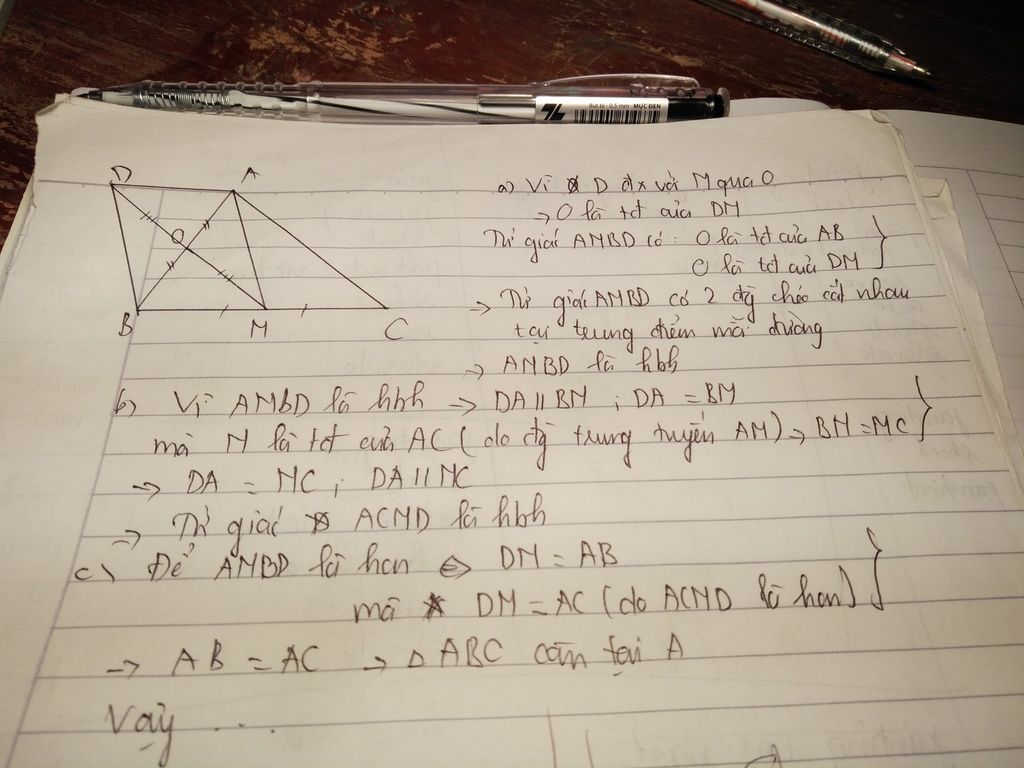 Bút bi - 0.5 mm MỰC ĐEN
D
A
O
B
M
C
a) Vì D đx với M qua O
→ O là tđ của DM
Tứ giác AMBD có: O là tđ của AB
O là tđ của DM
→ Tứ giác AMBD có 2 đg chéo cắt nhau
tại trung điểm mỗi đường
→ AMBD là hbh
b) Vì AMBD là hbh → DA || BM ; DA = BM
mà M là tđ của AC ( do đg trung tuyến AM) → BM = MC
→ DA = MC ; DA || MC
→ Tứ giác ACMD là hbh
c) Để AMBD là hcn ⇔ DM = AB
mà DM = AC ( do ACMD là hcn)
→ AB = AC → Δ ABC cân tại A
Vậy ...